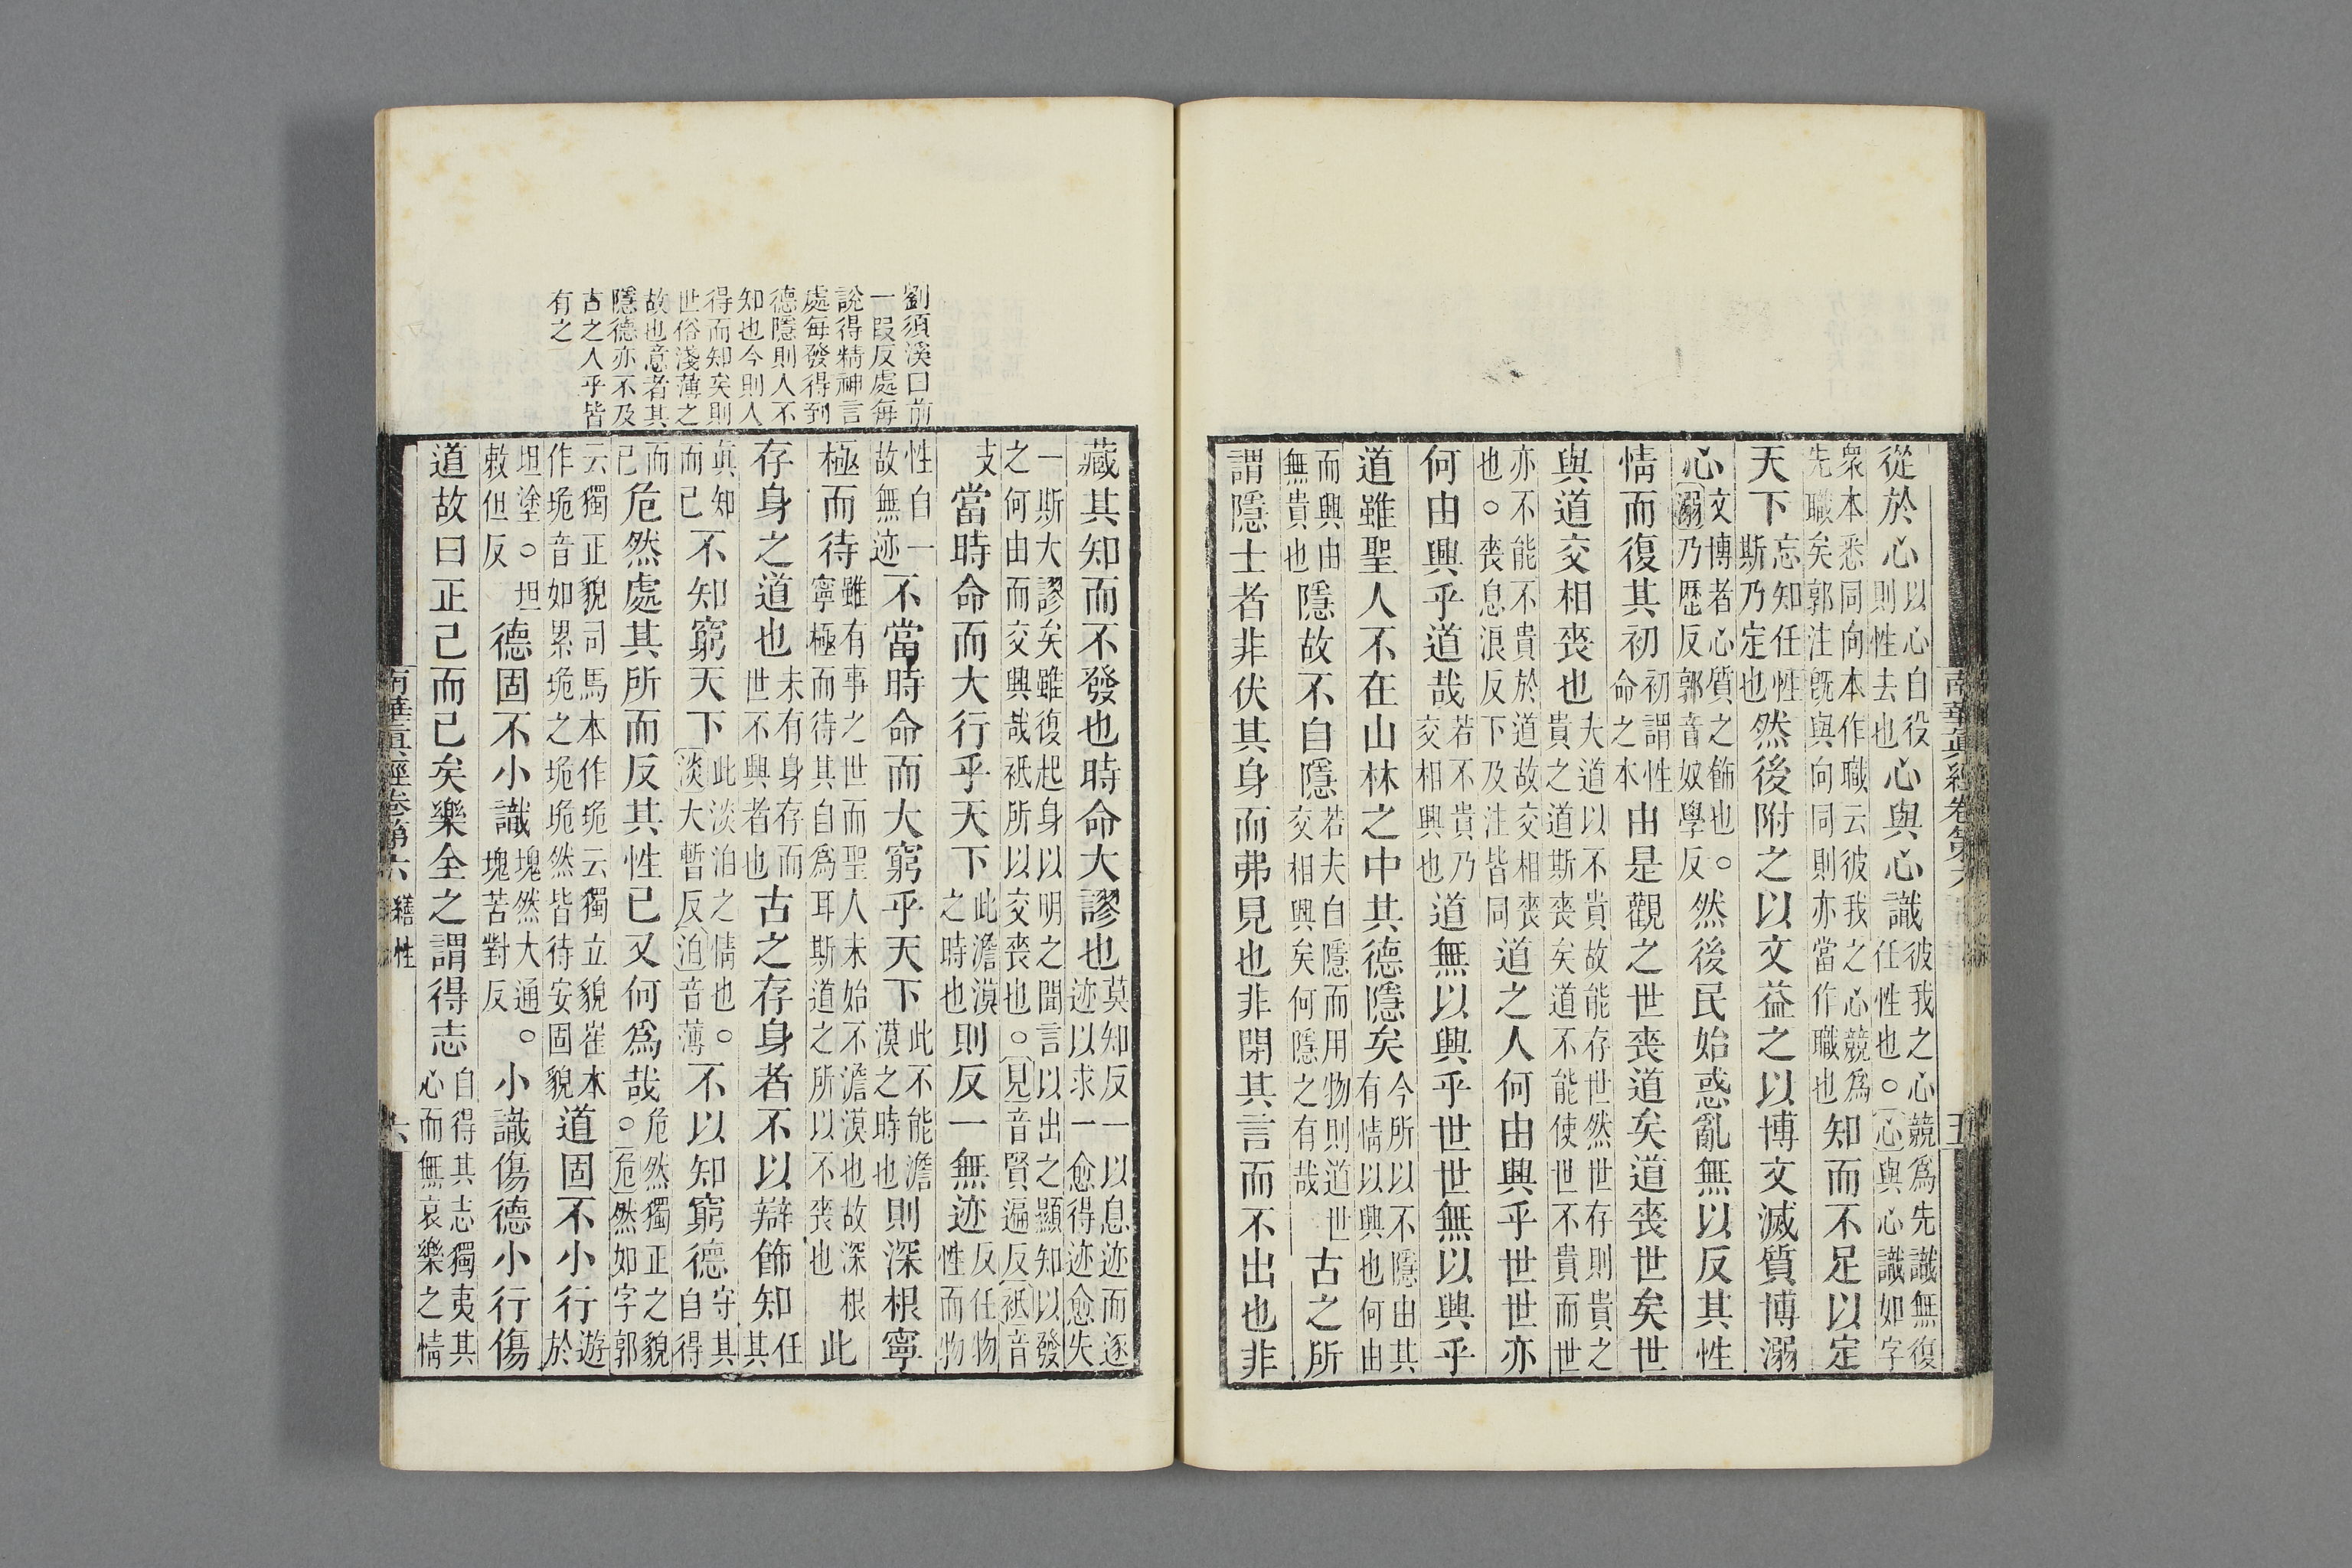 南華眞經卷第六
五
從於心以心自役則性去也心與心識彼我之心競爲先識無復任性也。心與心識如字
衆本悉同向本作職云彼我之心競爲先職矣郭注旣與向同則亦當作職也知而不足以定
天下忘知任性斯乃定也然後附之以文益之以博文滅質博溺
心文博者心質之飾也。溺乃歷反郭音奴學反然後民始惑亂無以反其性
情而復其初初謂性命之本由是觀之世喪道矣道喪世矣世
與道交相喪也夫道以不貴故能存世然世存則貴之貴之道斯喪矣道不能使世不貴而世
亦不能不貴於道故交相喪也。喪息浪反下及注皆同道之人何由興乎世世亦
何由興乎道哉若不貴乃交相興也道無以興乎世世無以興乎
道雖聖人不在山林之中其德隱矣今所以不隱由其有情以興也何由
而興由無貴也隱故不自隱若夫自隱而用物則道世交相興矣何隱之有哉古之所
謂隱士者非伏其身而弗見也非閉其言而不出也非
劉須溪曰前
一叚反處每
說得精神言
處每發得到
德隱則人不
知也今則人
得而知矣則
世俗淺薄之
故也意者其
隱德亦不及
古之人乎皆
有之
藏其知而不發也時命大謬也莫知反一以息迹而逐迹以求一愈得迹愈失
一斯大謬矣雖復起身以明之開言以出之顯知以發之何由而交興哉祗所以交喪也。見音賢遍反祗音
支當時命而大行乎天下此澹漠之時也則反一無迹反任物性而物
性自一故無迹不當時命而大窮乎天下此不能澹漠之時也則深根寧
極而待雖有事之世而聖人未始不澹漠也故深根寧極而待其自爲耳斯道之所以不喪也此
存身之道也未有身存而世不興者也古之存身者不以辯飾知任其
眞知而已不知窮天下此淡泊之情也。淡大暫反泊音薄不以知窮德守其自得
而已危然處其所而反其性已又何爲哉危然獨正之貌。危然如字郭
云獨正貌司馬本作垝云獨立貌崔本作垝音如累垝之垝垝然皆待安固貌道固不小行遊於
坦塗。坦敕但反德固不小識塊然大通。塊苦對反小識傷德小行傷
道故曰正己而已矣樂全之謂得志自得其志獨夷其心而無哀樂之情
南華眞經卷第六 繕性
六